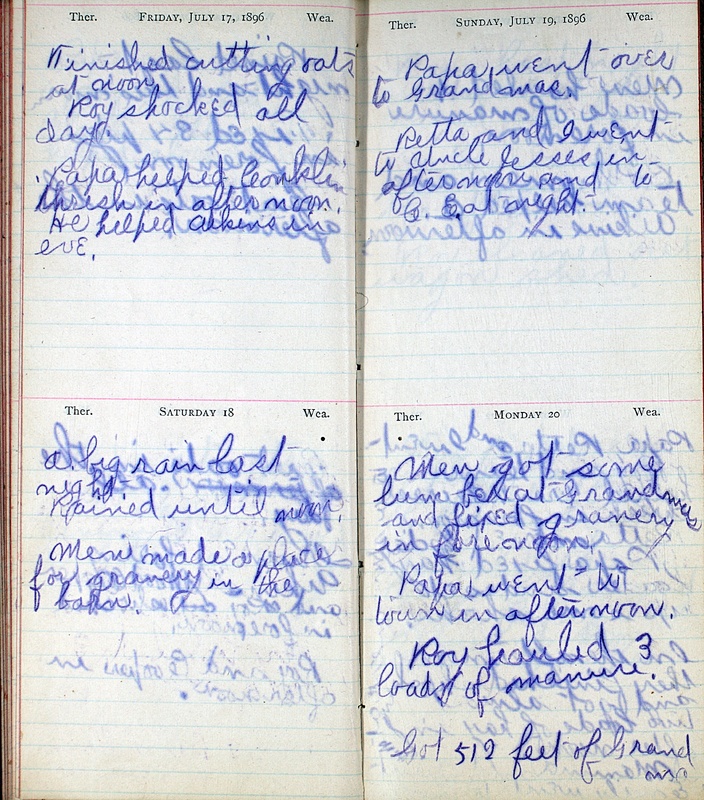 Ther. FRIDAY, JULY 17, 1896 Wea.
Finished cutting oats
at noon.
Roy shocked all
day.
Papa helped Conklin
thrish in afternoon.
He helped Atkins in
eve.
Ther. SATURDAY 18 Wea.
a big rain last
night
Rained until noon.
Men made a place
for granery in the
barn.
Ther. SUNDAY, JULY 19, 1896 Wea.
Papa went over
to Grandmas.
Retta and I went
to Uncle Jesses in
afternoon and to
C. E. at night.
Ther. MONDAY 20 Wea.
Men got some
lumber at Grandmas
and fixed granery
in forenoon.
Papa went to
town in afternoon.
Roy hauled 3
loads of manure.
Got 512 feet of Grand
ma